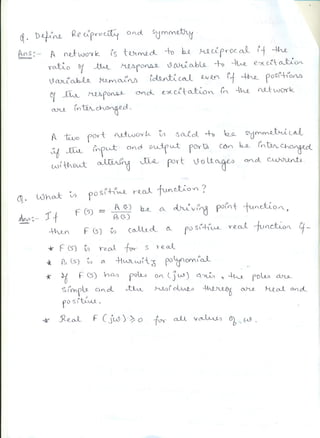 q. Define Reciprocity and symmetry
Ans:- A network is termed to be reciprocal if the
ratio of the response variable to the excitation
variable remains identical even if the positions
of the response and excitation in the network
are interchanged.
A two port network is said to be symmetrical
if the input and output ports can be interchanged
without altering the port voltages and currents.
q. What is positive real function?
Ans:- If F(s) = A(s)/B(s) be a driving point function,
then F(s) is called a positive real function if-
* F(s) is real for s real
* B(s) is a Hurwitz polynomial
* If F(s) has poles on (jω) axis, the poles are
simple and the residues thereof are real and
positive.
* Real F(jω) ≥ 0 for all values of ω.